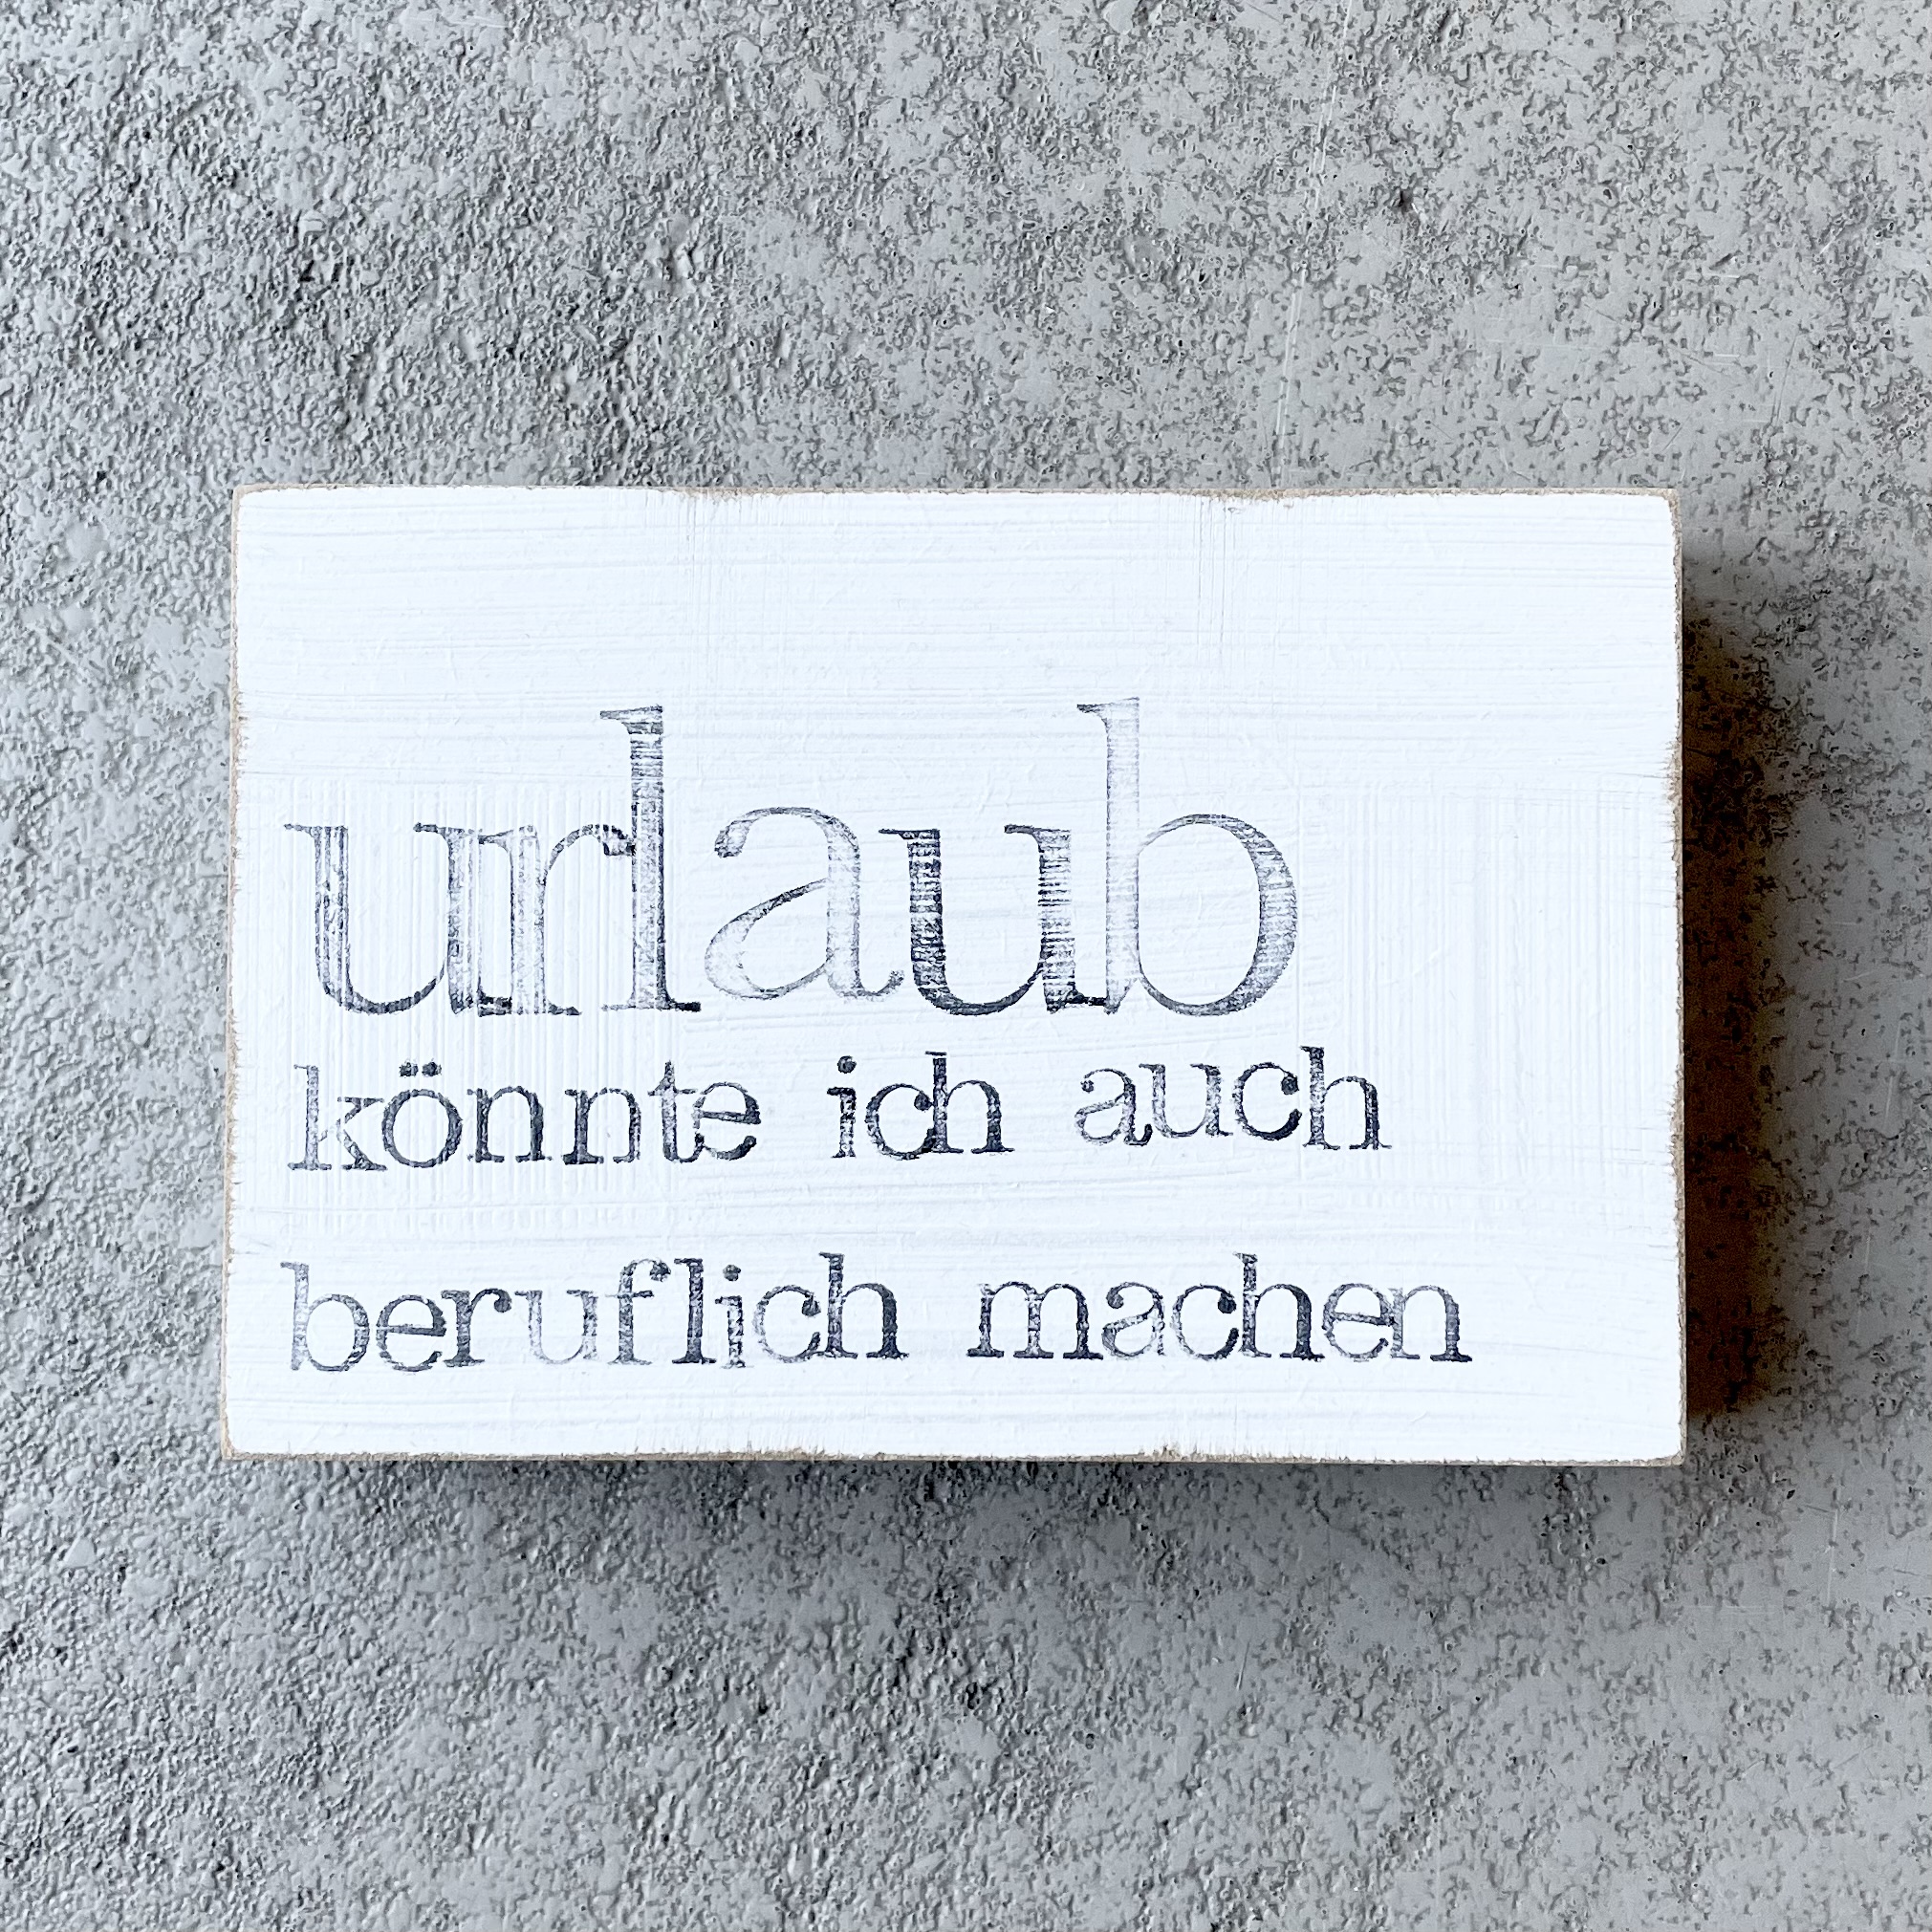 urlaub
könnte ich auch
beruflich machen